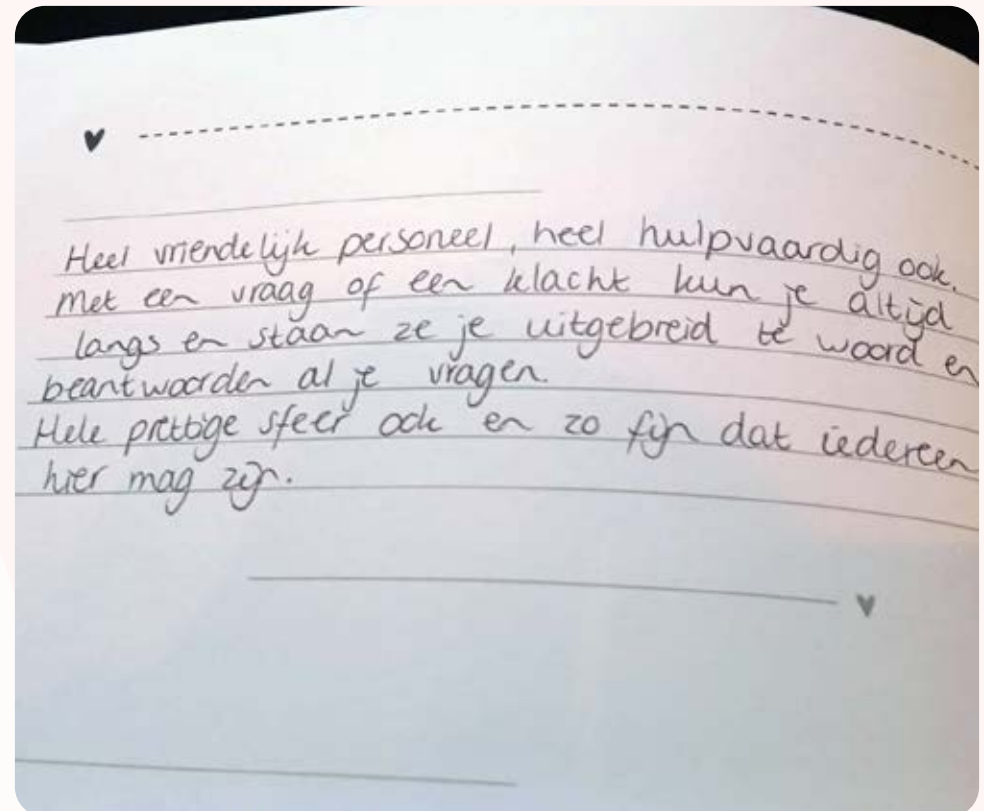 Heel vriendelijk personeel, heel hulpvaardig ook.
Met een vraag of een klacht kun je altijd
langs en staan ze je uitgebreid te woord en
beantwoorden al je vragen.
Hele prettige sfeer ook en zo fijn dat iedereen
hier mag zijn.